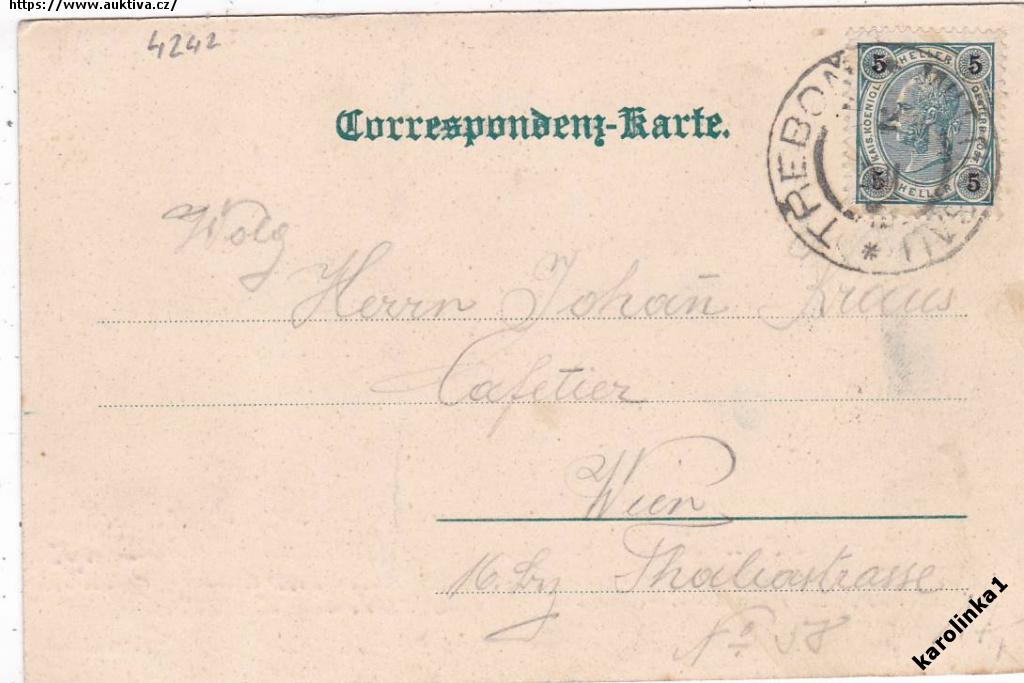 https://www.auktiva.cz/
4242
Correspondenz-Karte.
5 HELLER 5
KAIS. KOENIGL. OESTERR. POST
5 HELLER 5
TREBON
Wolg
Herrn Johañ Kraus
Cafetier
Wien
16. Bz Thaliastrasse
No 58
karolinka1